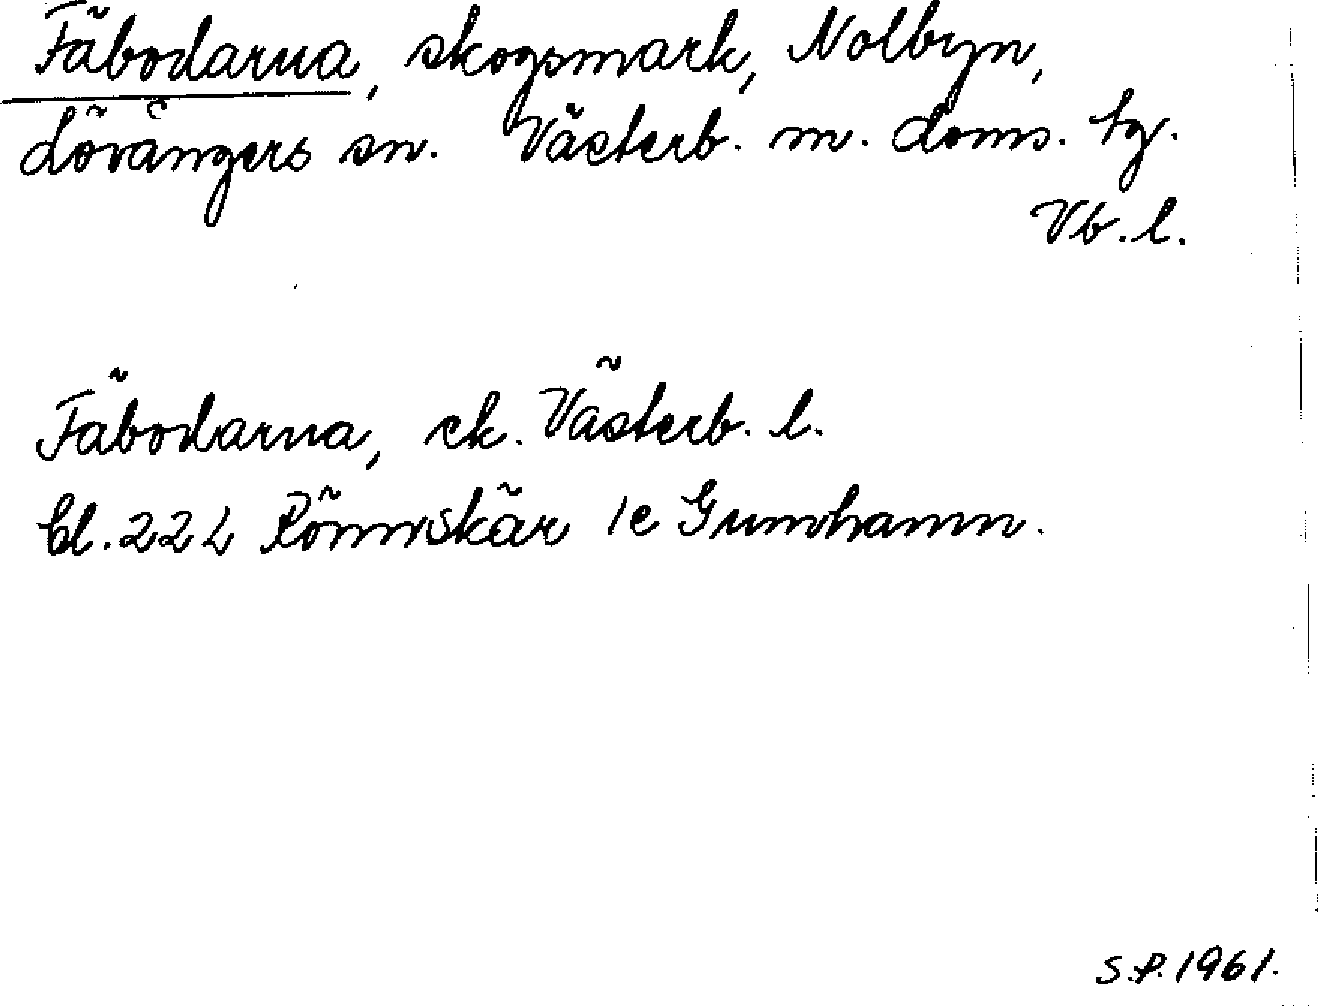 Fäbodarna, skogsmark, Nolbyn,
Lövångers sn. Västerb. m. doms. tg.
Vb. l.
Fäbodarna, ek. Västerb. l.
bl. 22 L Rönnskär 1e Gumhamn.
S.P. 1961.